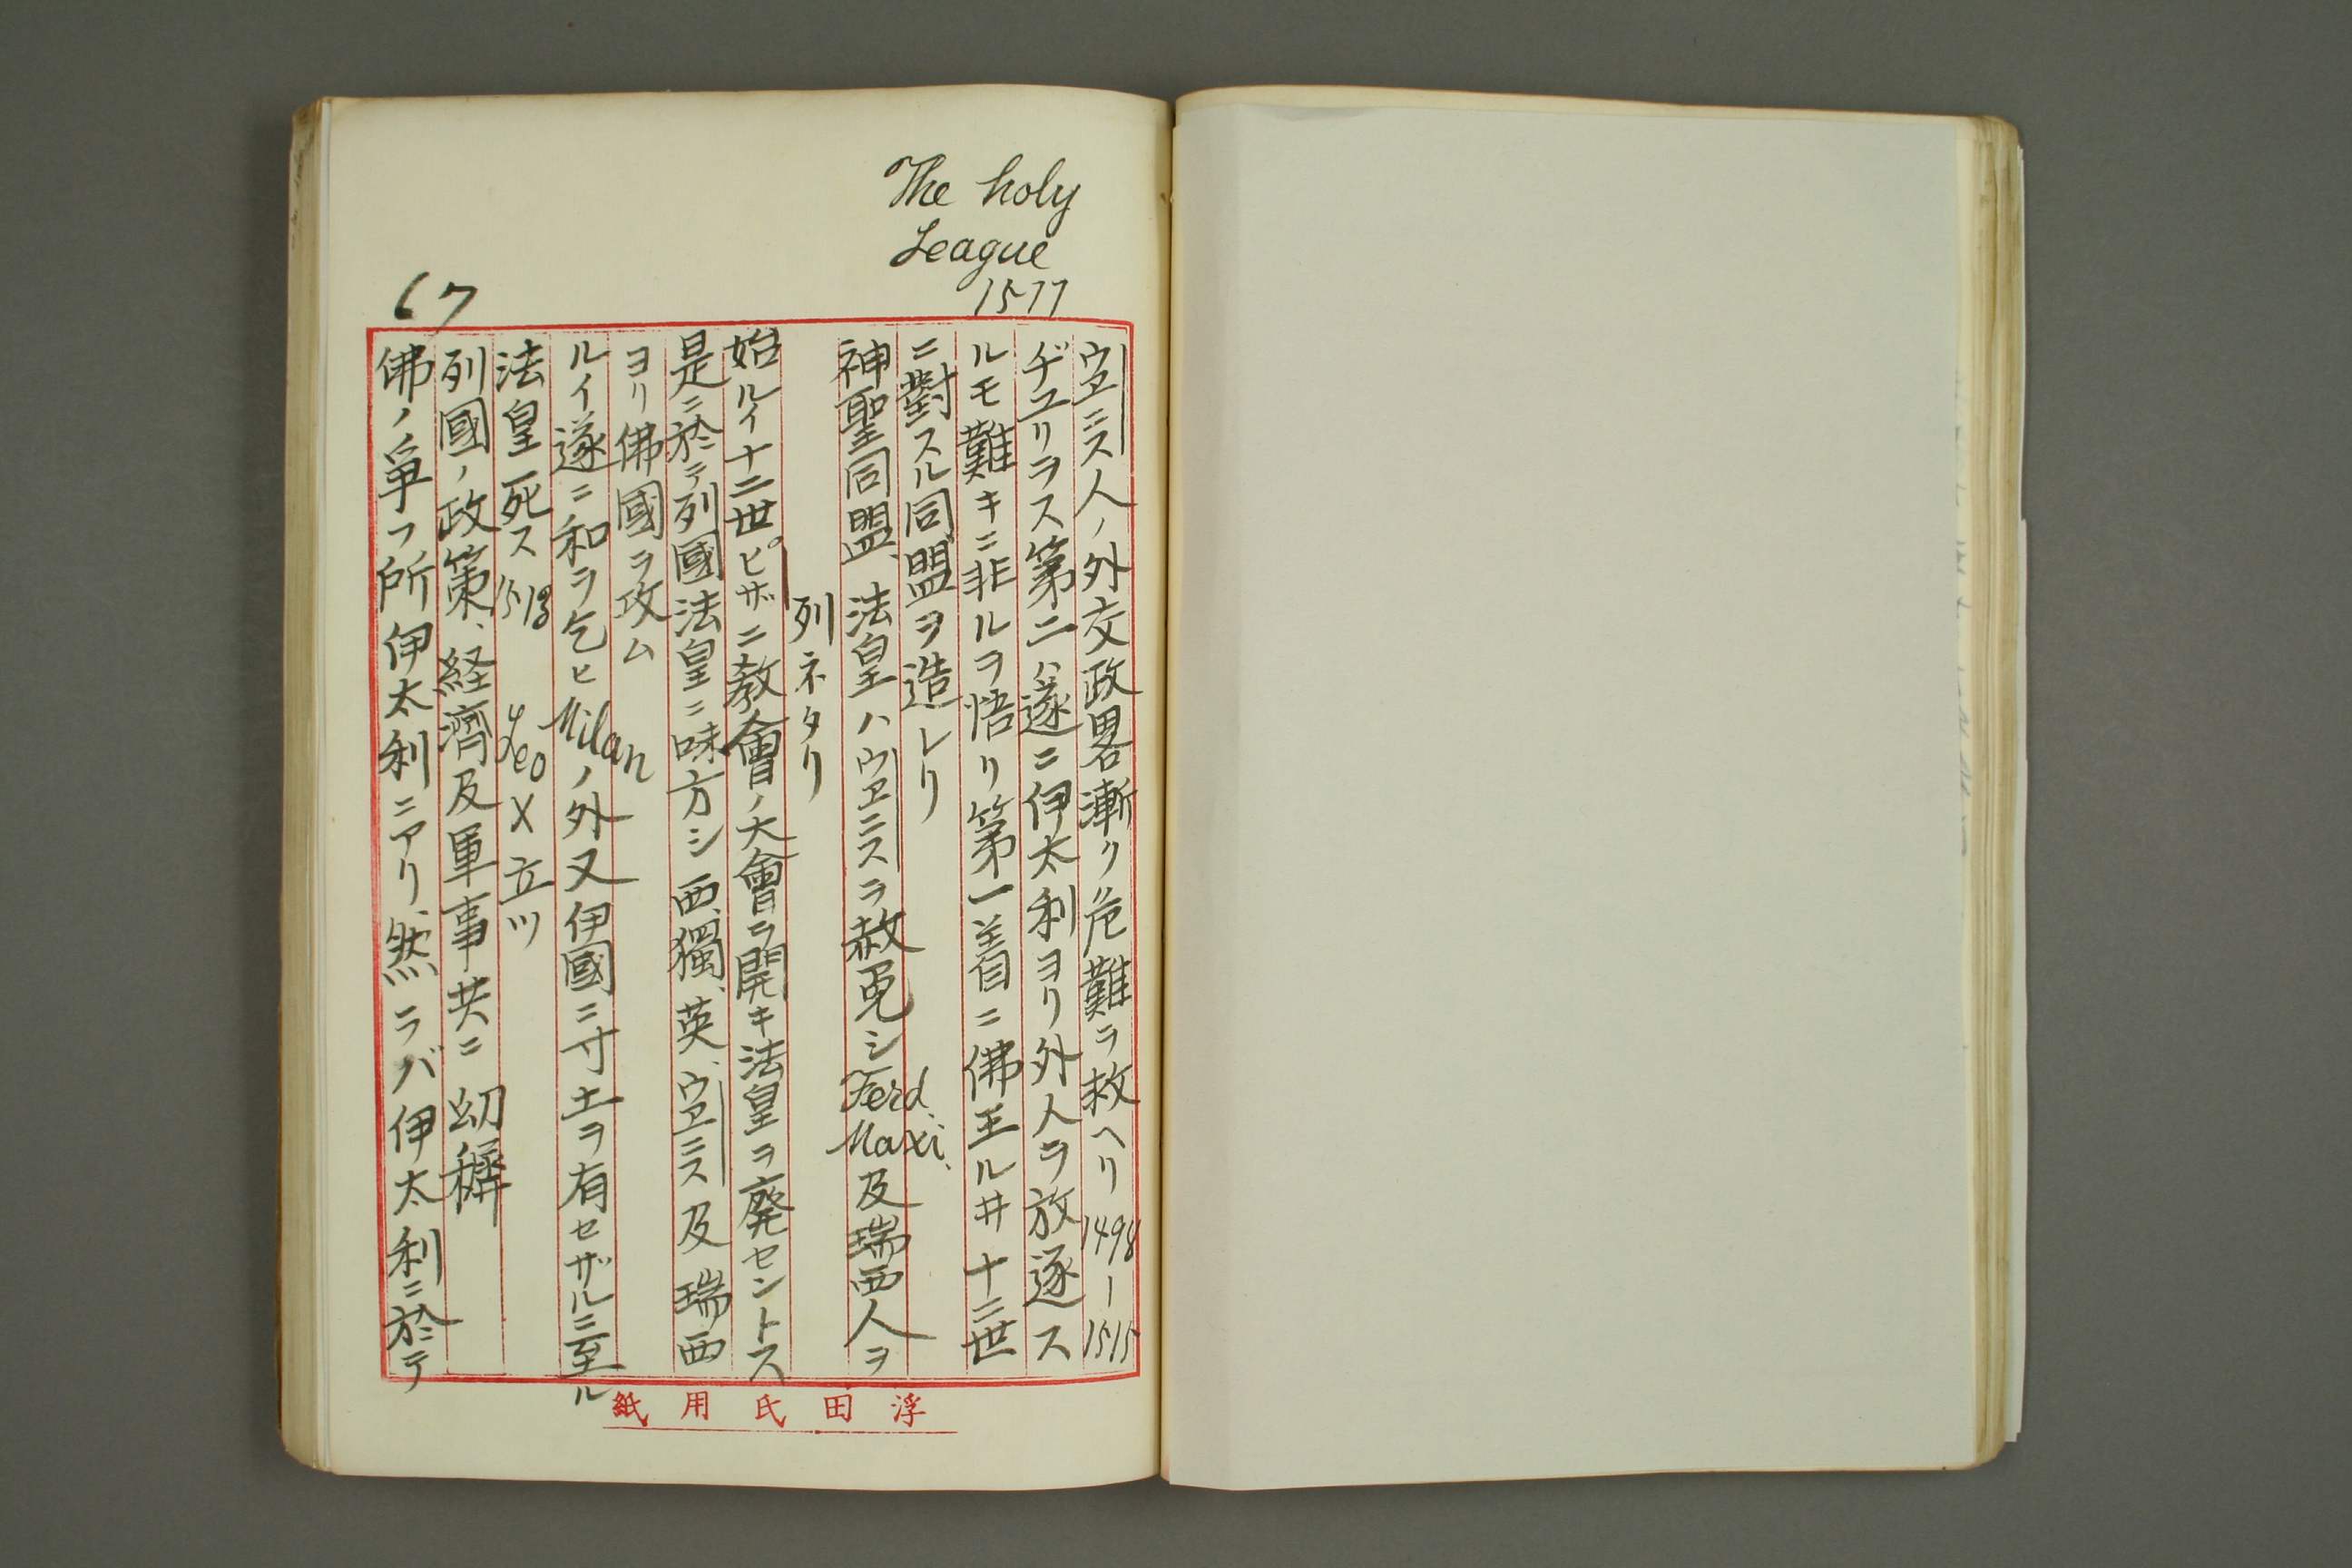 The holy
League
1511
67
ヴェニス人ノ外交政畧漸ク危難ヲ救ヘリ 1498-1515
ヂユリヲス第二ハ遂ニ伊太利ヨリ外人ヲ放逐ス
ルモ難キニ非ルヲ悟リ第一着ニ佛王ルイ十二世
ニ對スル同盟ヲ造レリ
神聖同盟、法皇ハヴェニスヲ赦免シ Ferd. Maxi. 及瑞西人ヲ
列ネタリ
始ルイ十二世ピザニ教會ノ大會ヲ開キ法皇ヲ廃セントス
是ニ於テ列國法皇ニ味方シ西、獨、英、ヴェニス及瑞西
ヨリ佛國ヲ攻ム
ルイ遂ニ和ヲ乞ヒ Milan ノ外又伊國ニ寸土ヲ有セザルニ至ル
法皇死ス 1513 Leo X 立ツ
列國ノ政策、経濟及軍事共ニ幼穉
佛ノ爭フ所伊太利ニアリ、然ラバ伊太利ニ於テ
浮田氏用紙